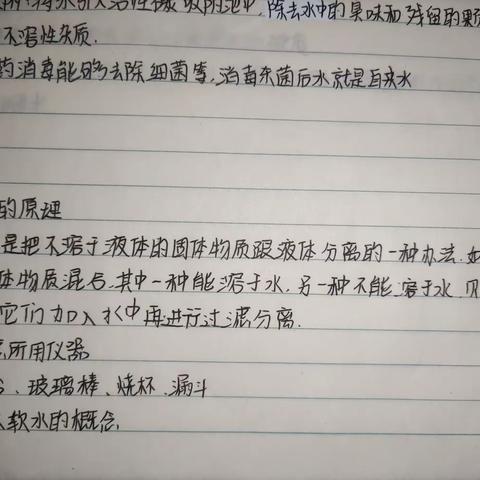 将水引入活性炭吸附池中,除去水中的臭味和残留的颗
不溶性杂质.
药消毒能够去除细菌等,消毒杀菌后水就是自来水
的原理
是把不溶于液体的固体物质跟液体分离的一种办法.如
体物质混合,其中一种能溶于水,另一种不能溶于水,则
它们加入水中再进行过滤分离.
所用仪器
、玻璃棒、烧杯、漏斗
软水的概念